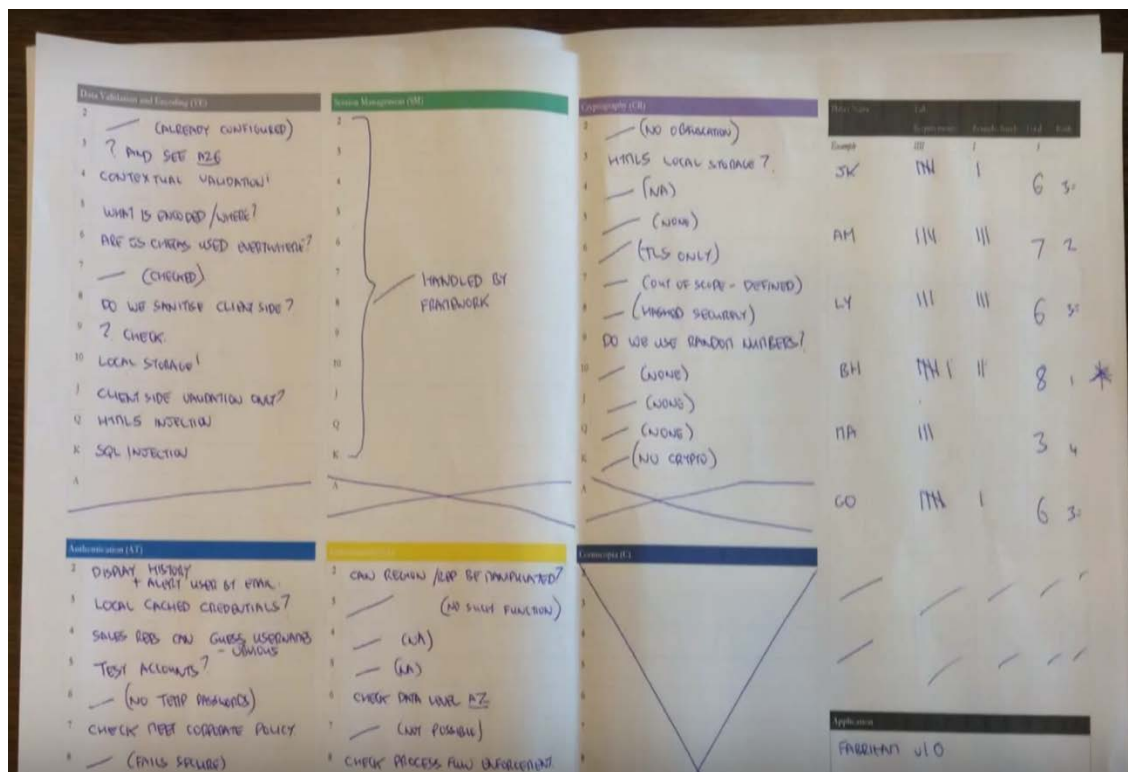 Data Validation and Encoding (VE)
2
(ALREADY CONFIGURED)
3 ? AND SEE AZ6
4 CONTEXTUAL VALIDATION!
5 WHAT IS ENCODED/WHERE?
6 ARE IS CHECKS USED EVERYWHERE?
7 (CHECKED)
8 DO WE SANITISE CLIENT SIDE?
9 ? CHECK.
10 LOCAL STORAGE!
J CLIENT SIDE VALIDATION ONLY?
Q HTML5 INJECTION
K SQL INJECTION
A
Session Management (SM)
2
3
4
5
6
7
8
9
10
J
Q
K
A
HANDLED BY
FRAMEWORK
Cryptography (CR)
2 (NO OBFUSCATION)
3 HTML5 LOCAL STORAGE?
4 (NA)
5 (NONE)
6 (TLS ONLY)
7 (OUT OF SCOPE - DEFINED)
8 (HASHED SECURELY)
9 DO WE USE RANDOM NUMBERS?
10 (NONE)
J (NONE)
Q (NONE)
K (NO CRYPTO)
A
Total Rank
Example
JK 6 3=
AM 7 2
LY 6 3=
BH 8 1 *
MA 3 4
GO 6 3=
Authentication (AT)
2 DISPLAY HISTORY
+ ALERT USER BY EMAIL.
3 LOCAL CACHED CREDENTIALS?
4 SALES REPS CAN GUESS USERNAMES
- OBVIOUS
5 TEST ACCOUNTS?
6 (NO TEMP PASSWORDS)
7 CHECK MEET CORPORATE POLICY.
8 (FAILS SECURE)
2 CAN REGION/REP BE MANIPULATED?
3 (NO SUCH FUNCTION)
4 (NA)
5 (NA)
6 CHECK DATA LEVEL AZ
7 (NOT POSSIBLE)
8 CHECK PROCESS FLOW ENFORCEMENT.
Cornucopia (C)
Application